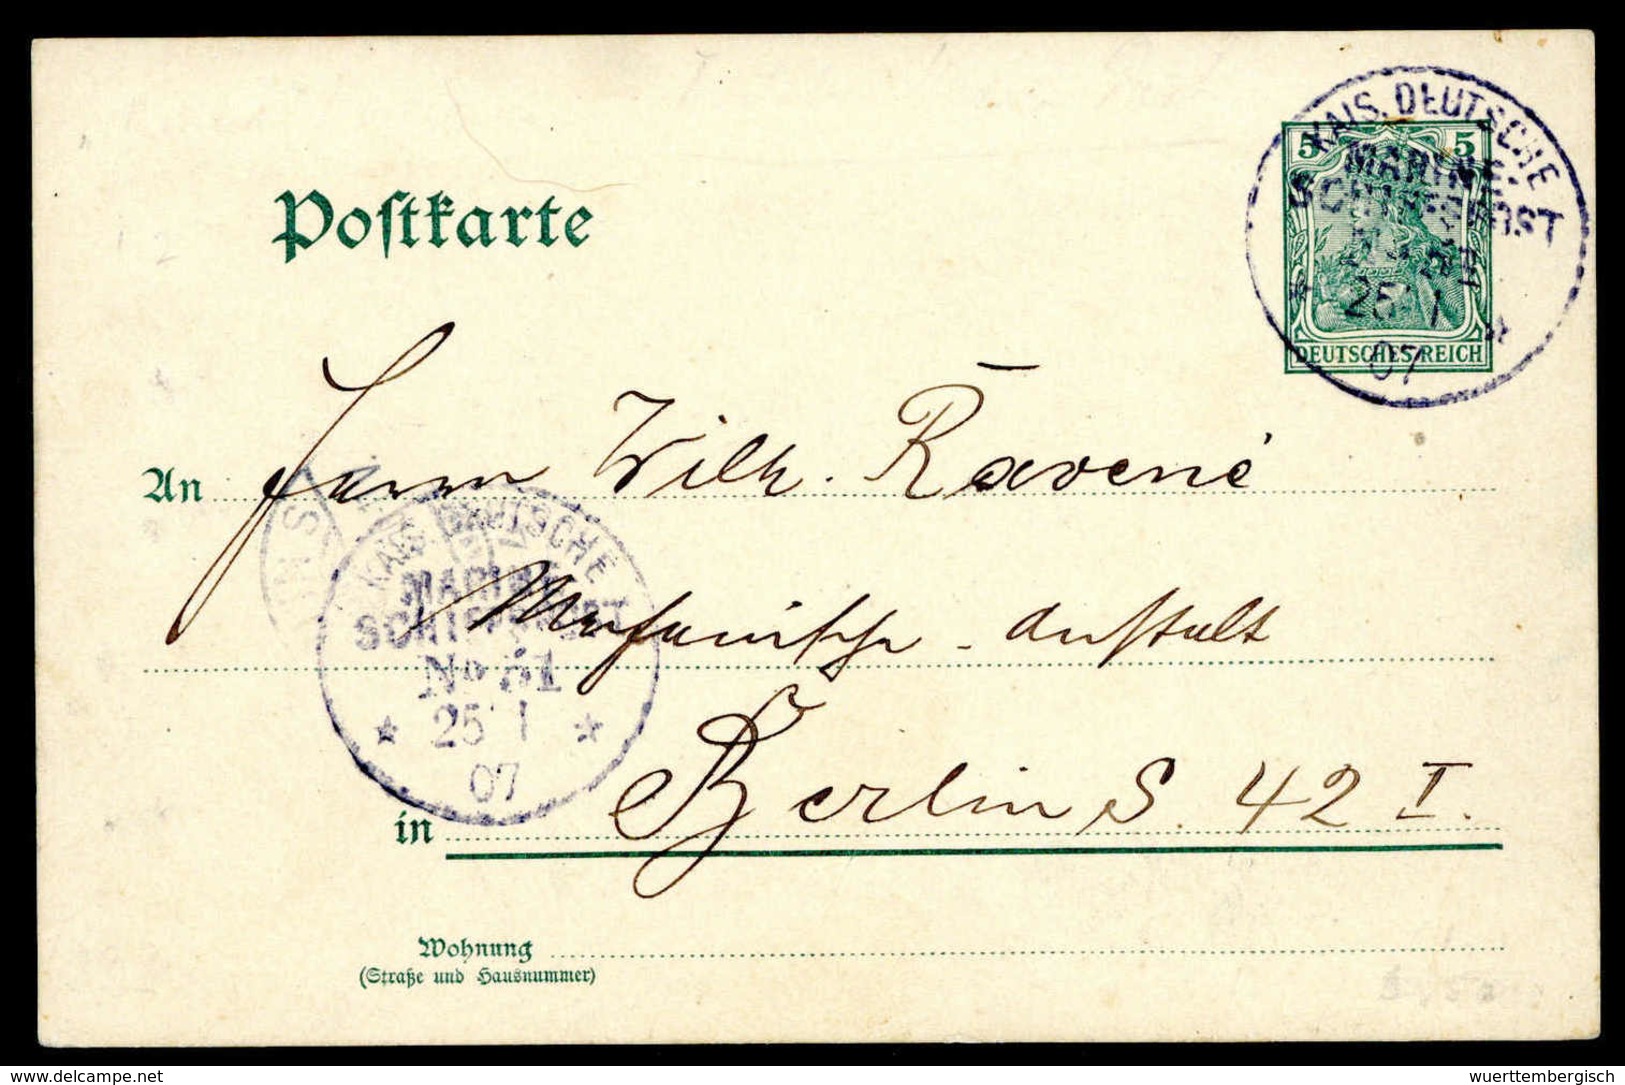 KAIS. DEUTSCHE
MARINE-
SCHIFFSPOST
25 1
07
5 5
DEUTSCHES REICH
Postkarte
An Herrn Wilh. Ravené
KAIS. DEUTSCHE
MARINE
SCHIFFSPOST
No 51
25 1
07
Anstalt
in Berlin S. 42 I.
Wohnung
(Straße und Hausnummer)
wuerttembergisch